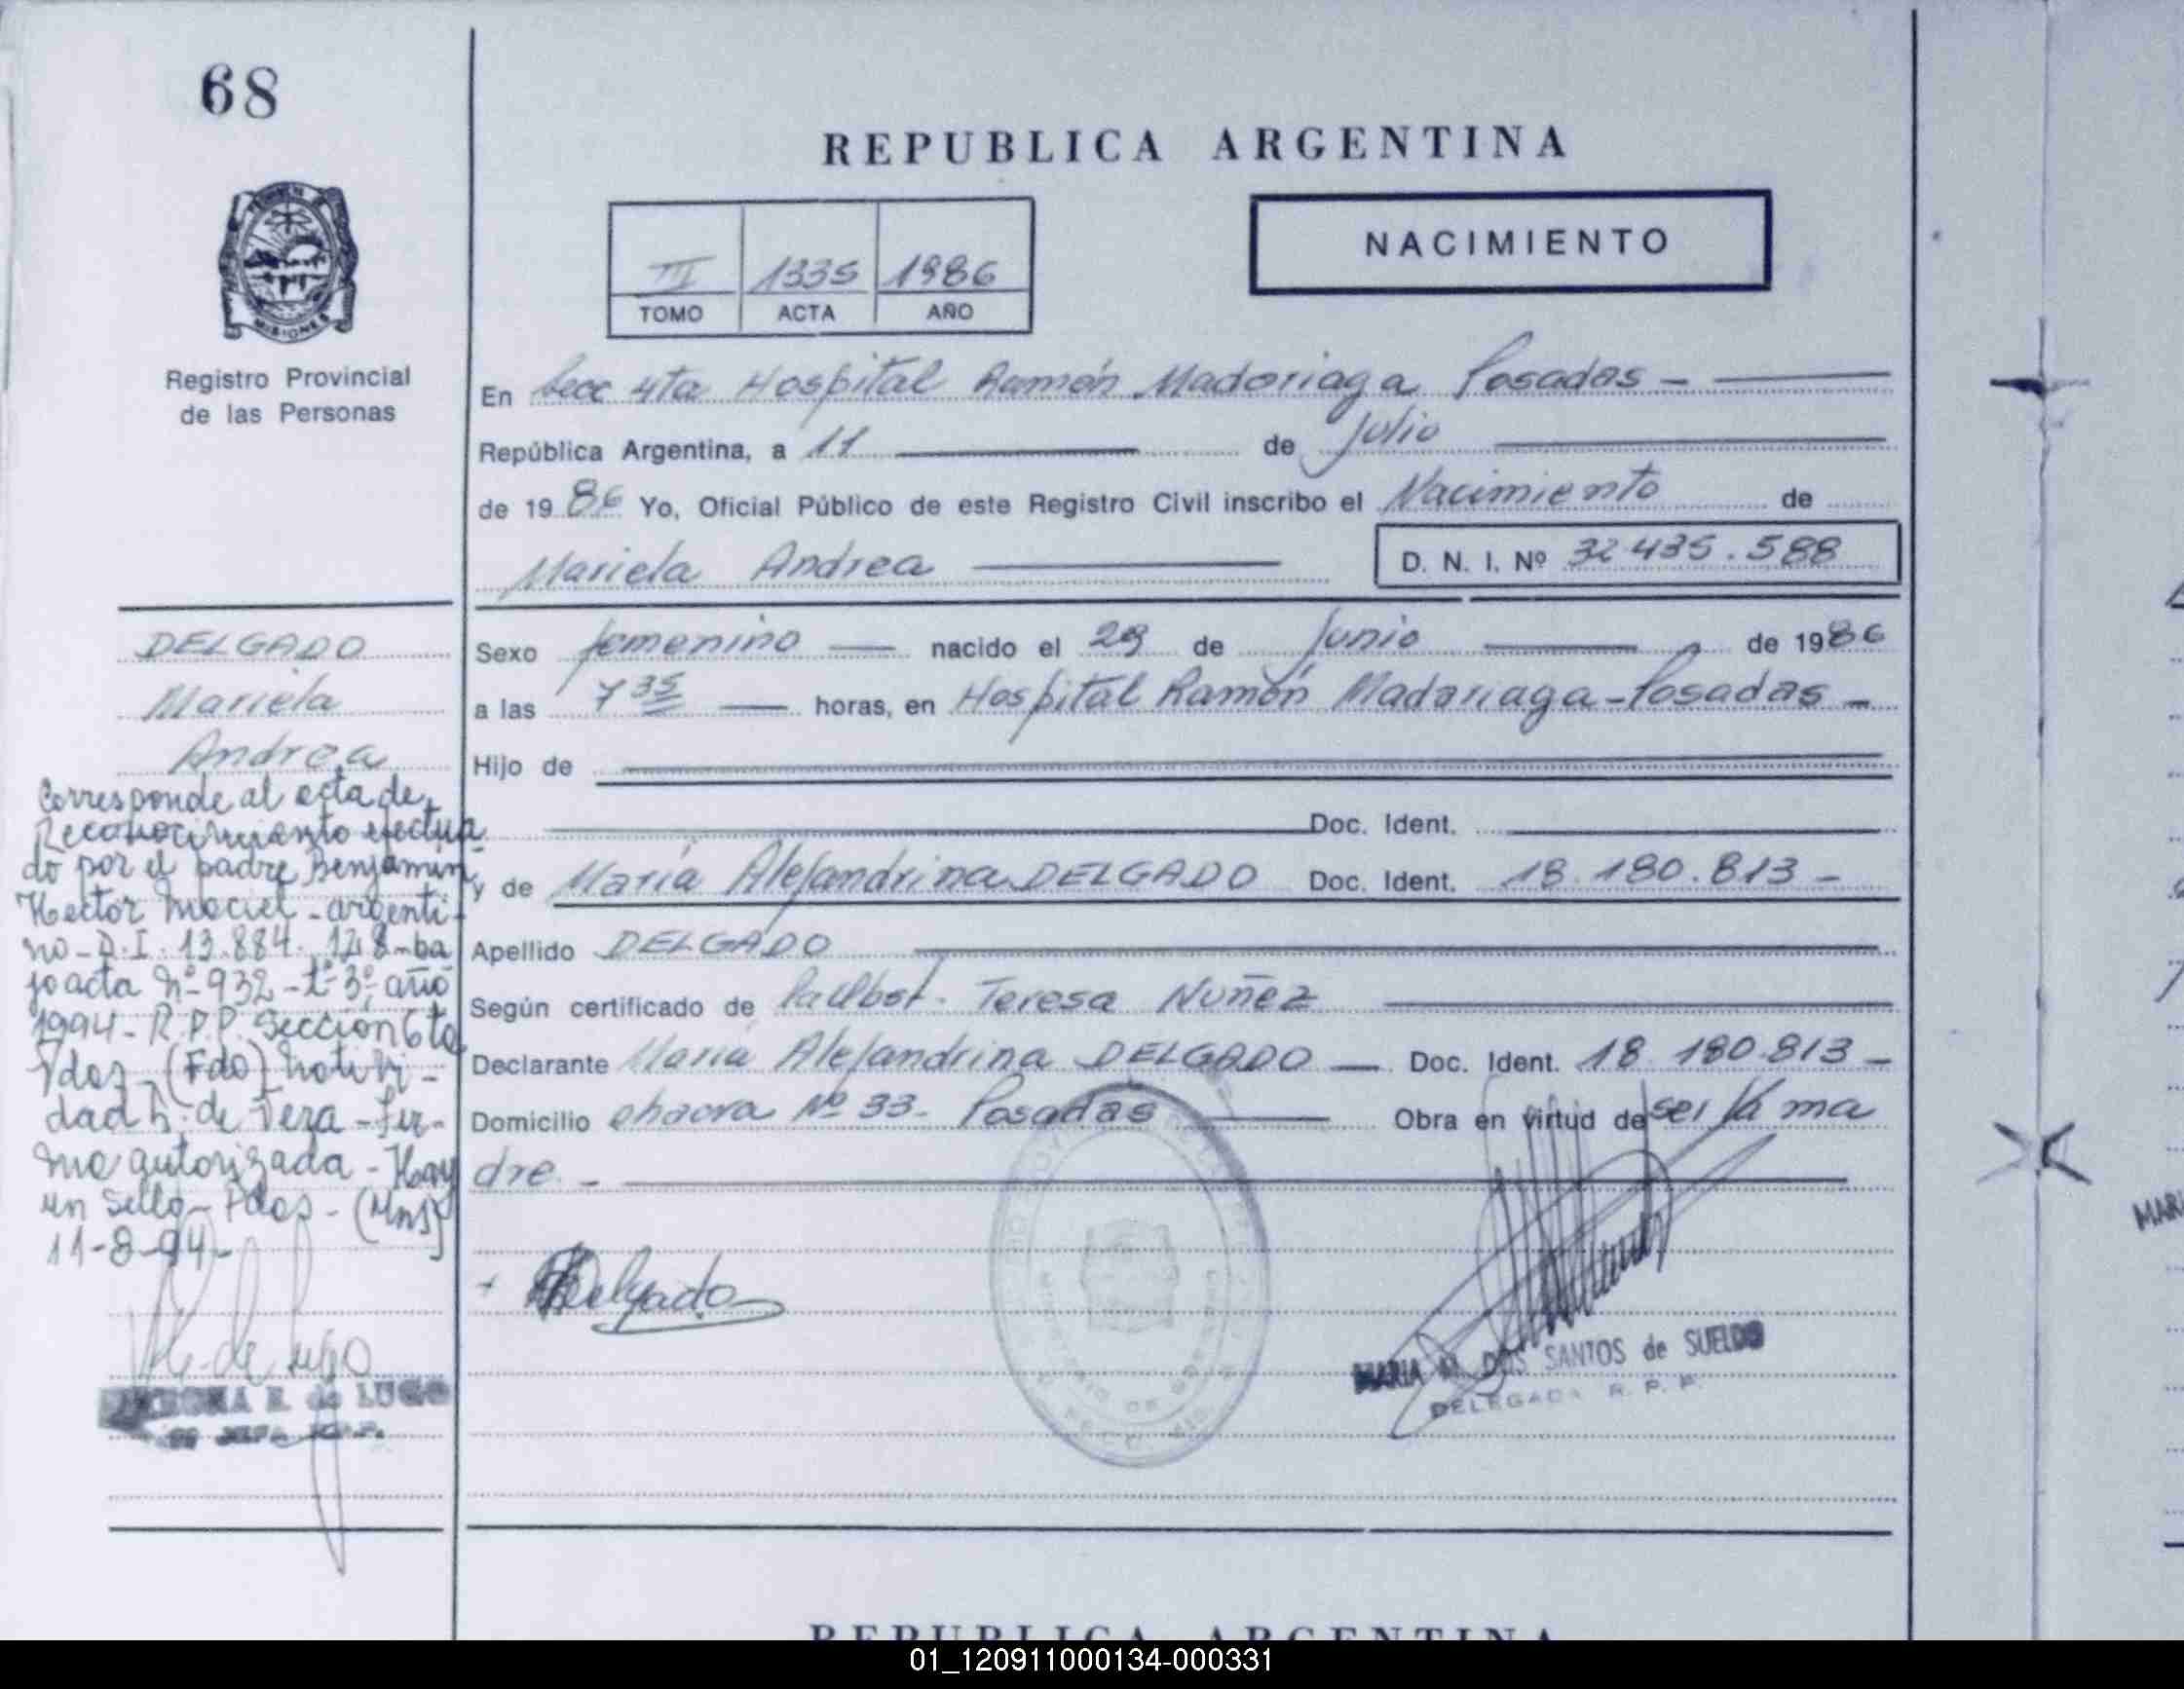 68
REPUBLICA ARGENTINA
NACIMIENTO
III 1335 1986
TOMO ACTA AÑO
MISIONES
Registro Provincial
de las Personas
En Secc 4ta Hospital Ramón Madariaga Posadas -
República Argentina, a 11 de Julio
de 1986 Yo, Oficial Público de este Registro Civil inscribo el Nacimiento de
Mariela Andrea D. N. I. Nº 32.435.588
DELGADO
Mariela
Andrea
Sexo femenino nacido el 29 de Junio de 1986
a las 7 35 horas, en Hospital Ramón Madariaga - Posadas -
Hijo de
Doc. Ident.
y de María Alejandrina DELGADO Doc. Ident. 18.180.813 -
Apellido DELGADO
Según certificado de Teresa Nuñez
Declarante María Alejandrina DELGADO Doc. Ident. 18 180.813 -
Domicilio chacra Nº 33 - Posadas Obra en virtud de ser la ma
dre. -
Corresponde al acta de
Reconocimiento efectua
do por el padre Benjamin
Hector Maciel - argenti-
no - D.I. 13.884.128 - ba
jo acta Nº 932 - tº 3º, año
1994 - R.P.P. Sección 6ta
Pdas - (Fdo) Nativi-
dad de Vera - Fir-
ma autorizada - Hay
un Sello - Pdas - (Mns)
11-8-94 -
Delgado
de Lugo
R. de LUGO
MARIA M. DOS SANTOS de SUELDO
DELEGADA R. P. P.
MAR
REPUBLICA ARGENTINA
01_120911000134-000331